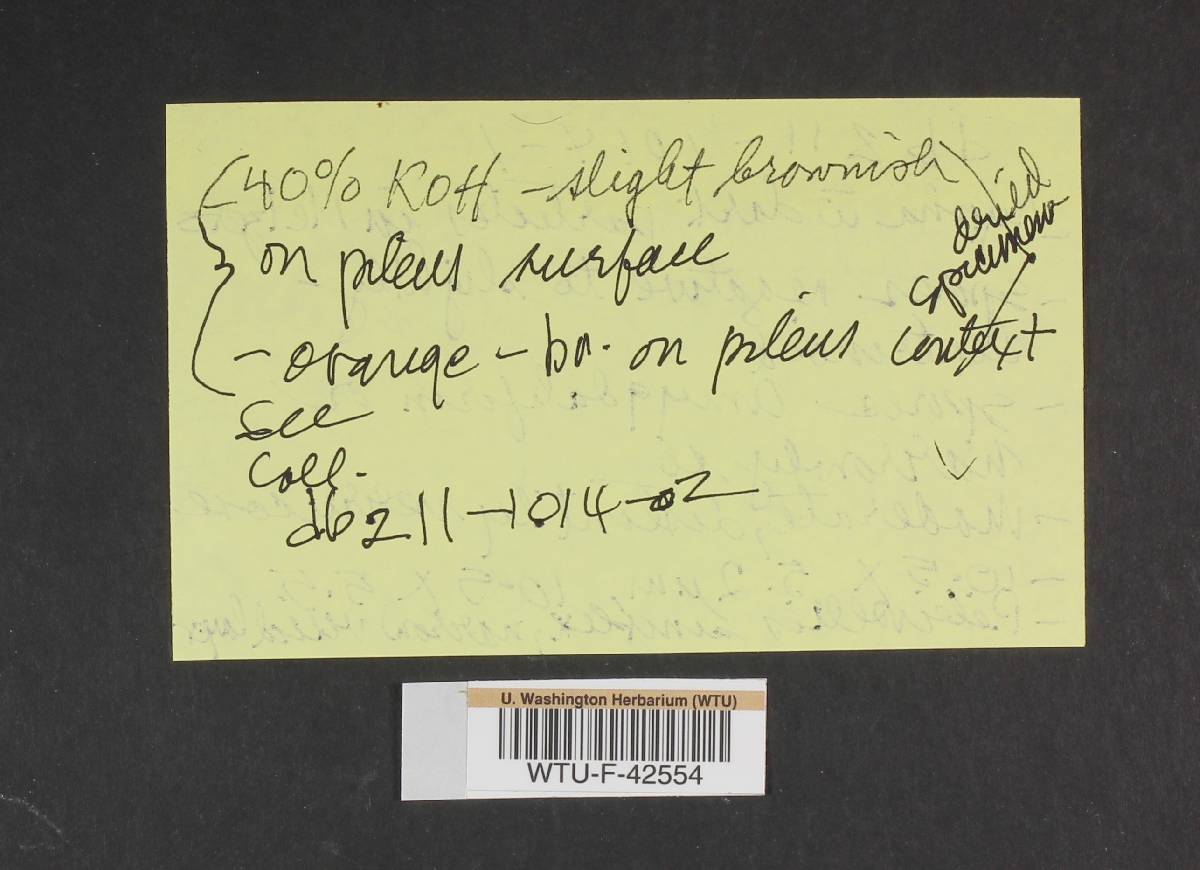 (-40% KOH - slight brownish)
on pileus surface
dried
specimen
- orange - bn. on pileus context
See
Coll.
db211-1014-02
U. Washington Herbarium (WTU)
WTU-F-42554